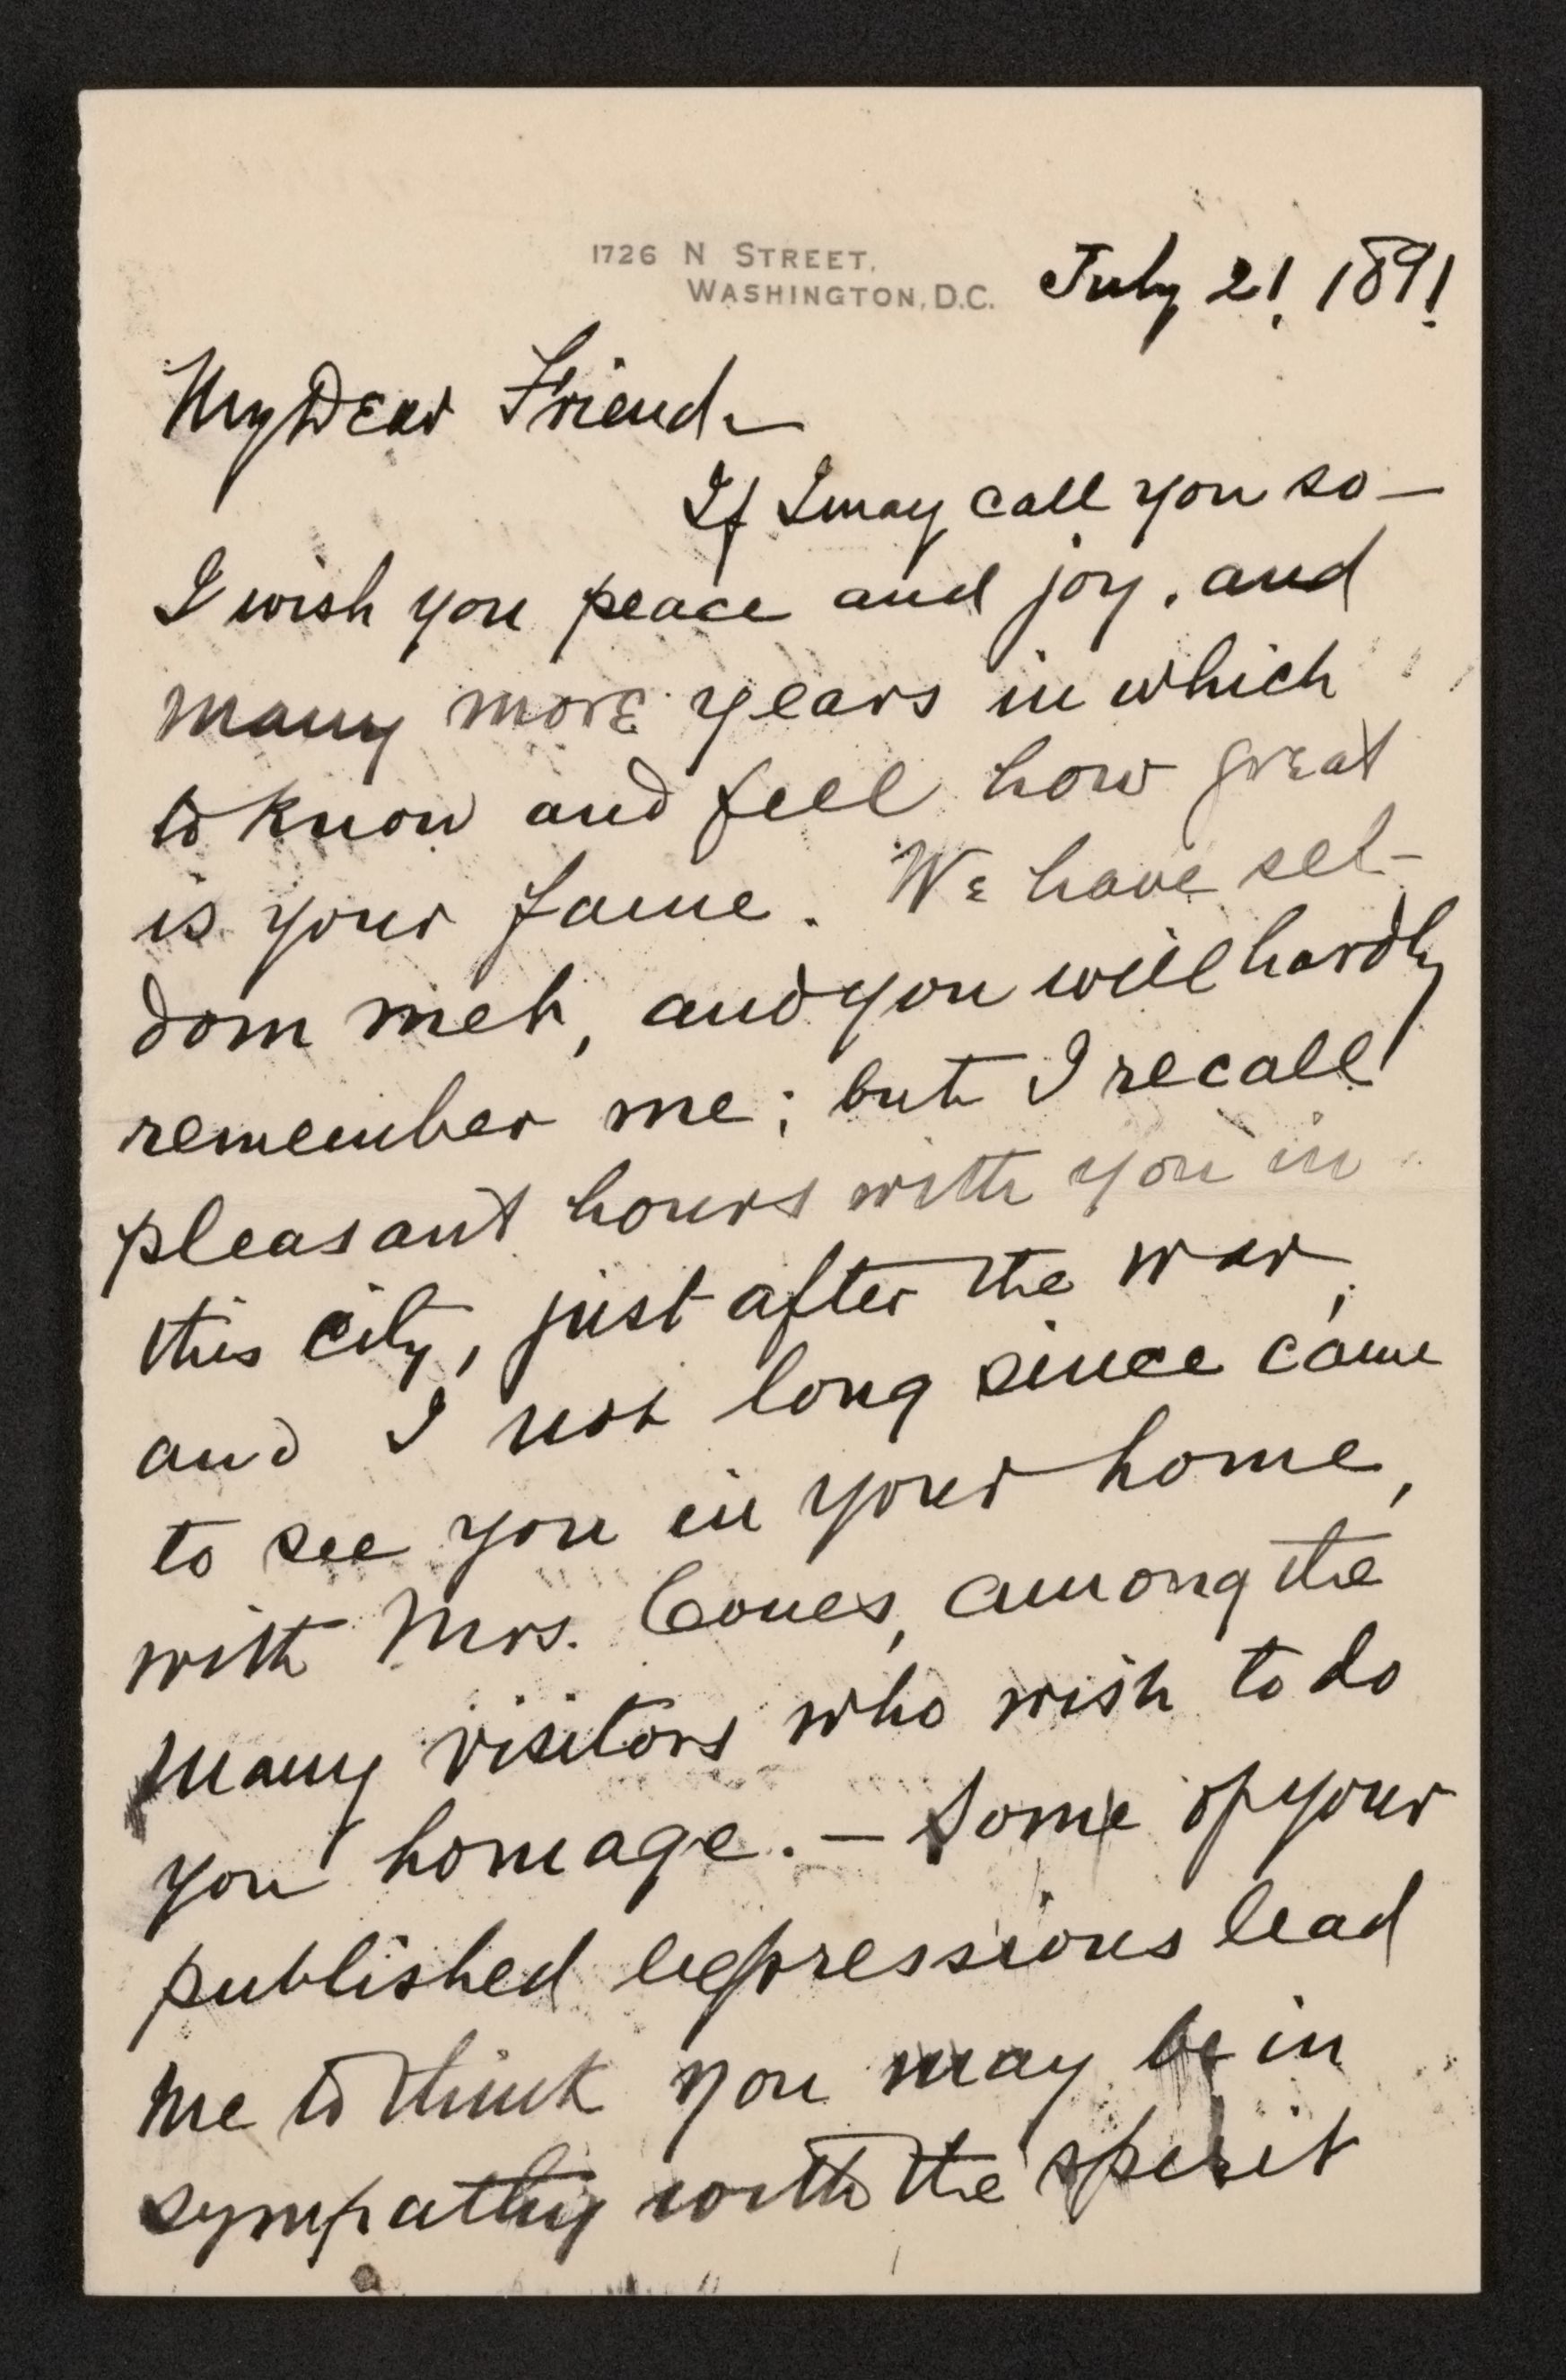 1726 N STREET,
WASHINGTON, D.C. July 21, 1891.
My Dear Friend—
If I may call you so—
I wish you peace and joy, and
many more years in which
to know and feel how great
is your fame. We have sel-
dom met, and you will hardly
remember me; but I recall
pleasant hours with you in
this city, just after the war,
and I not long since came
to see you in your home,
with Mrs. Coues, among the
many visitors who wish to do
you homage. — Some of your
published expressions lead
me to think you may be in
sympathy with the spirit